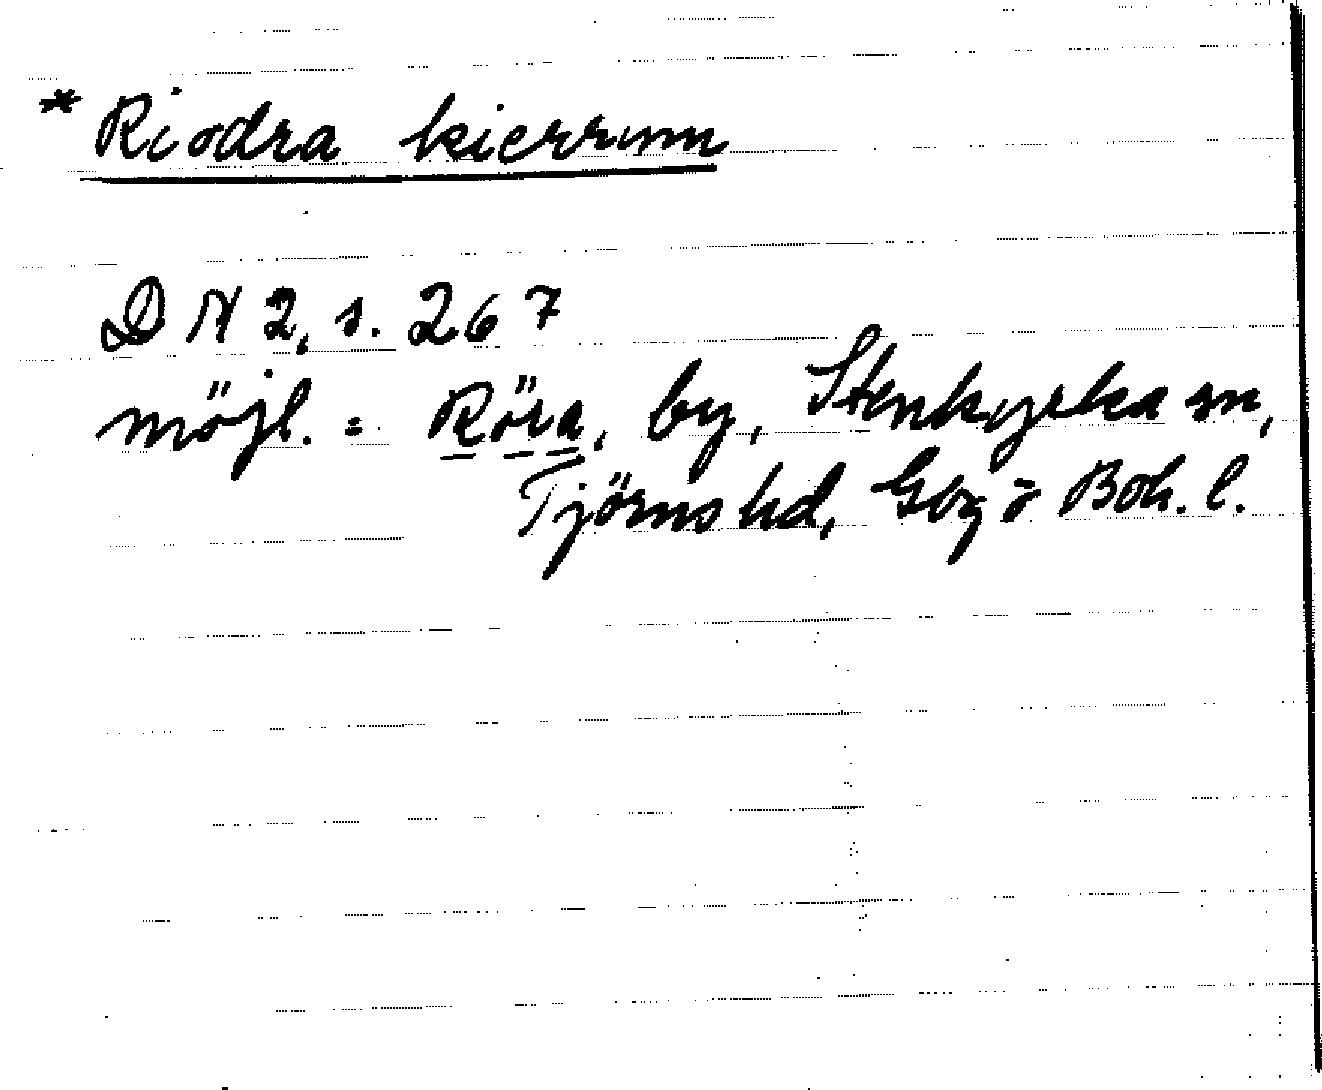 * Riodra kierrum
DN 2, s. 267
möjl. = Röra, by, Stenkyrka sn,
Tjörns hd, Gbg o Boh. l.